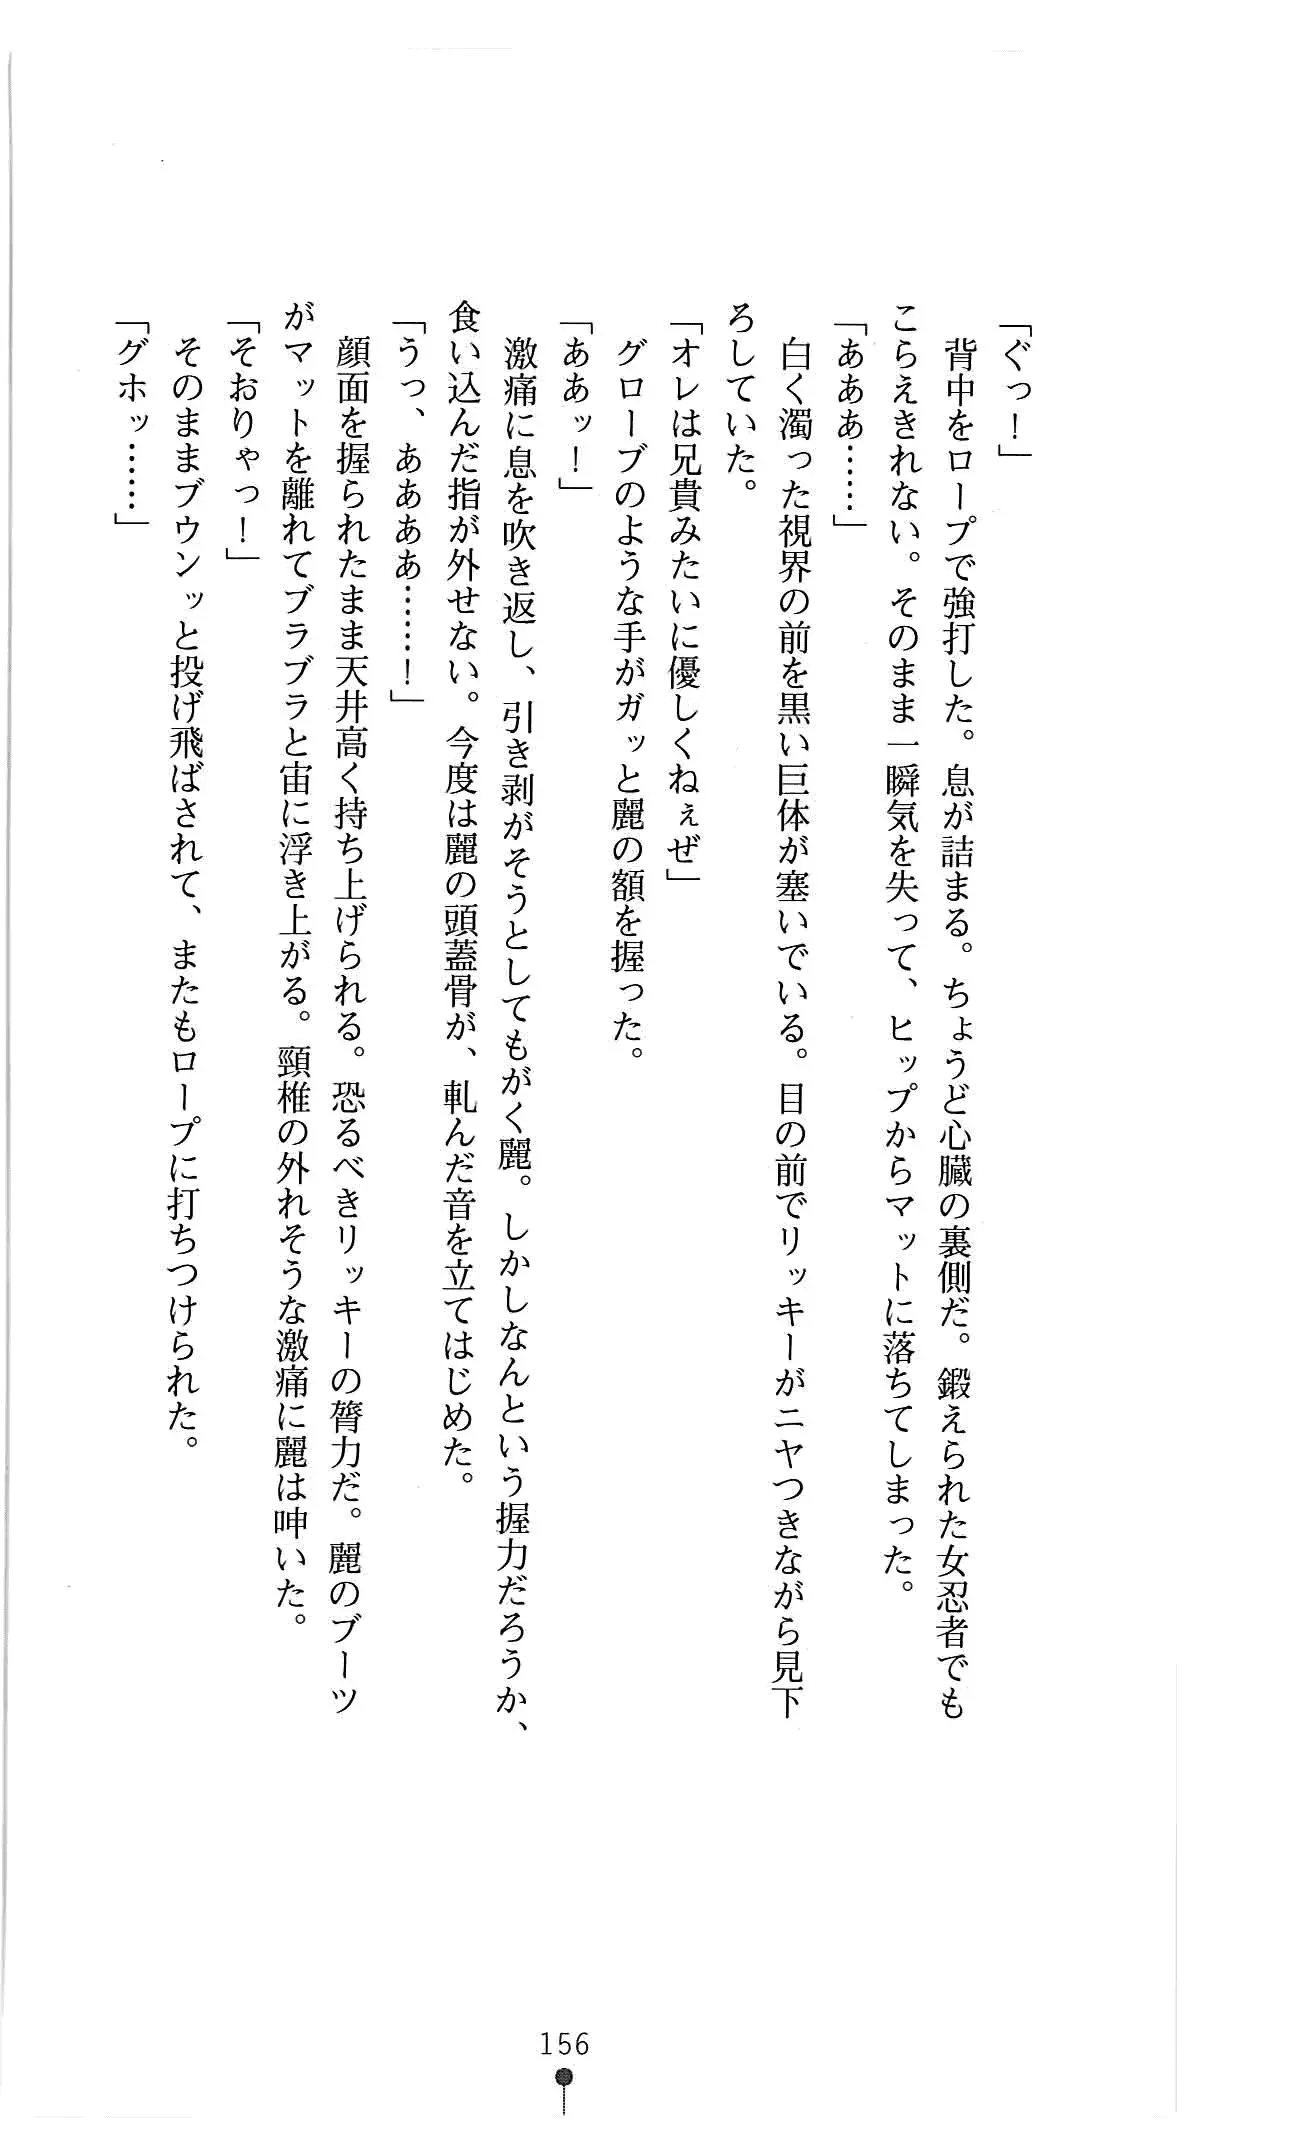 「ぐっ！」
　背中をロープで強打した。息が詰まる。ちょうど心臓の裏側だ。鍛えられた女忍者でも
こらえきれない。そのまま一瞬気を失って、ヒップからマットに落ちてしまった。
「あああ……」
　白く濁った視界の前を黒い巨体が塞いでいる。目の前でリッキーがニヤつきながら見下
ろしていた。
「オレは兄貴みたいに優しくねぇぜ」
　グローブのような手がガッと麗の額を握った。
「ああッ！」
　激痛に息を吹き返し、引き剥がそうとしてもがく麗。しかしなんという握力だろうか、
食い込んだ指が外せない。今度は麗の頭蓋骨が、軋んだ音を立てはじめた。
「うっ、ああああ……！」
　顔面を握られたまま天井高く持ち上げられる。恐るべきリッキーの膂力だ。麗のブーツ
がマットを離れてブラブラと宙に浮き上がる。頸椎の外れそうな激痛に麗は呻いた。
「そおりゃっ！」
　そのままブウンッと投げ飛ばされて、またもロープに打ちつけられた。
「グホッ……」
156